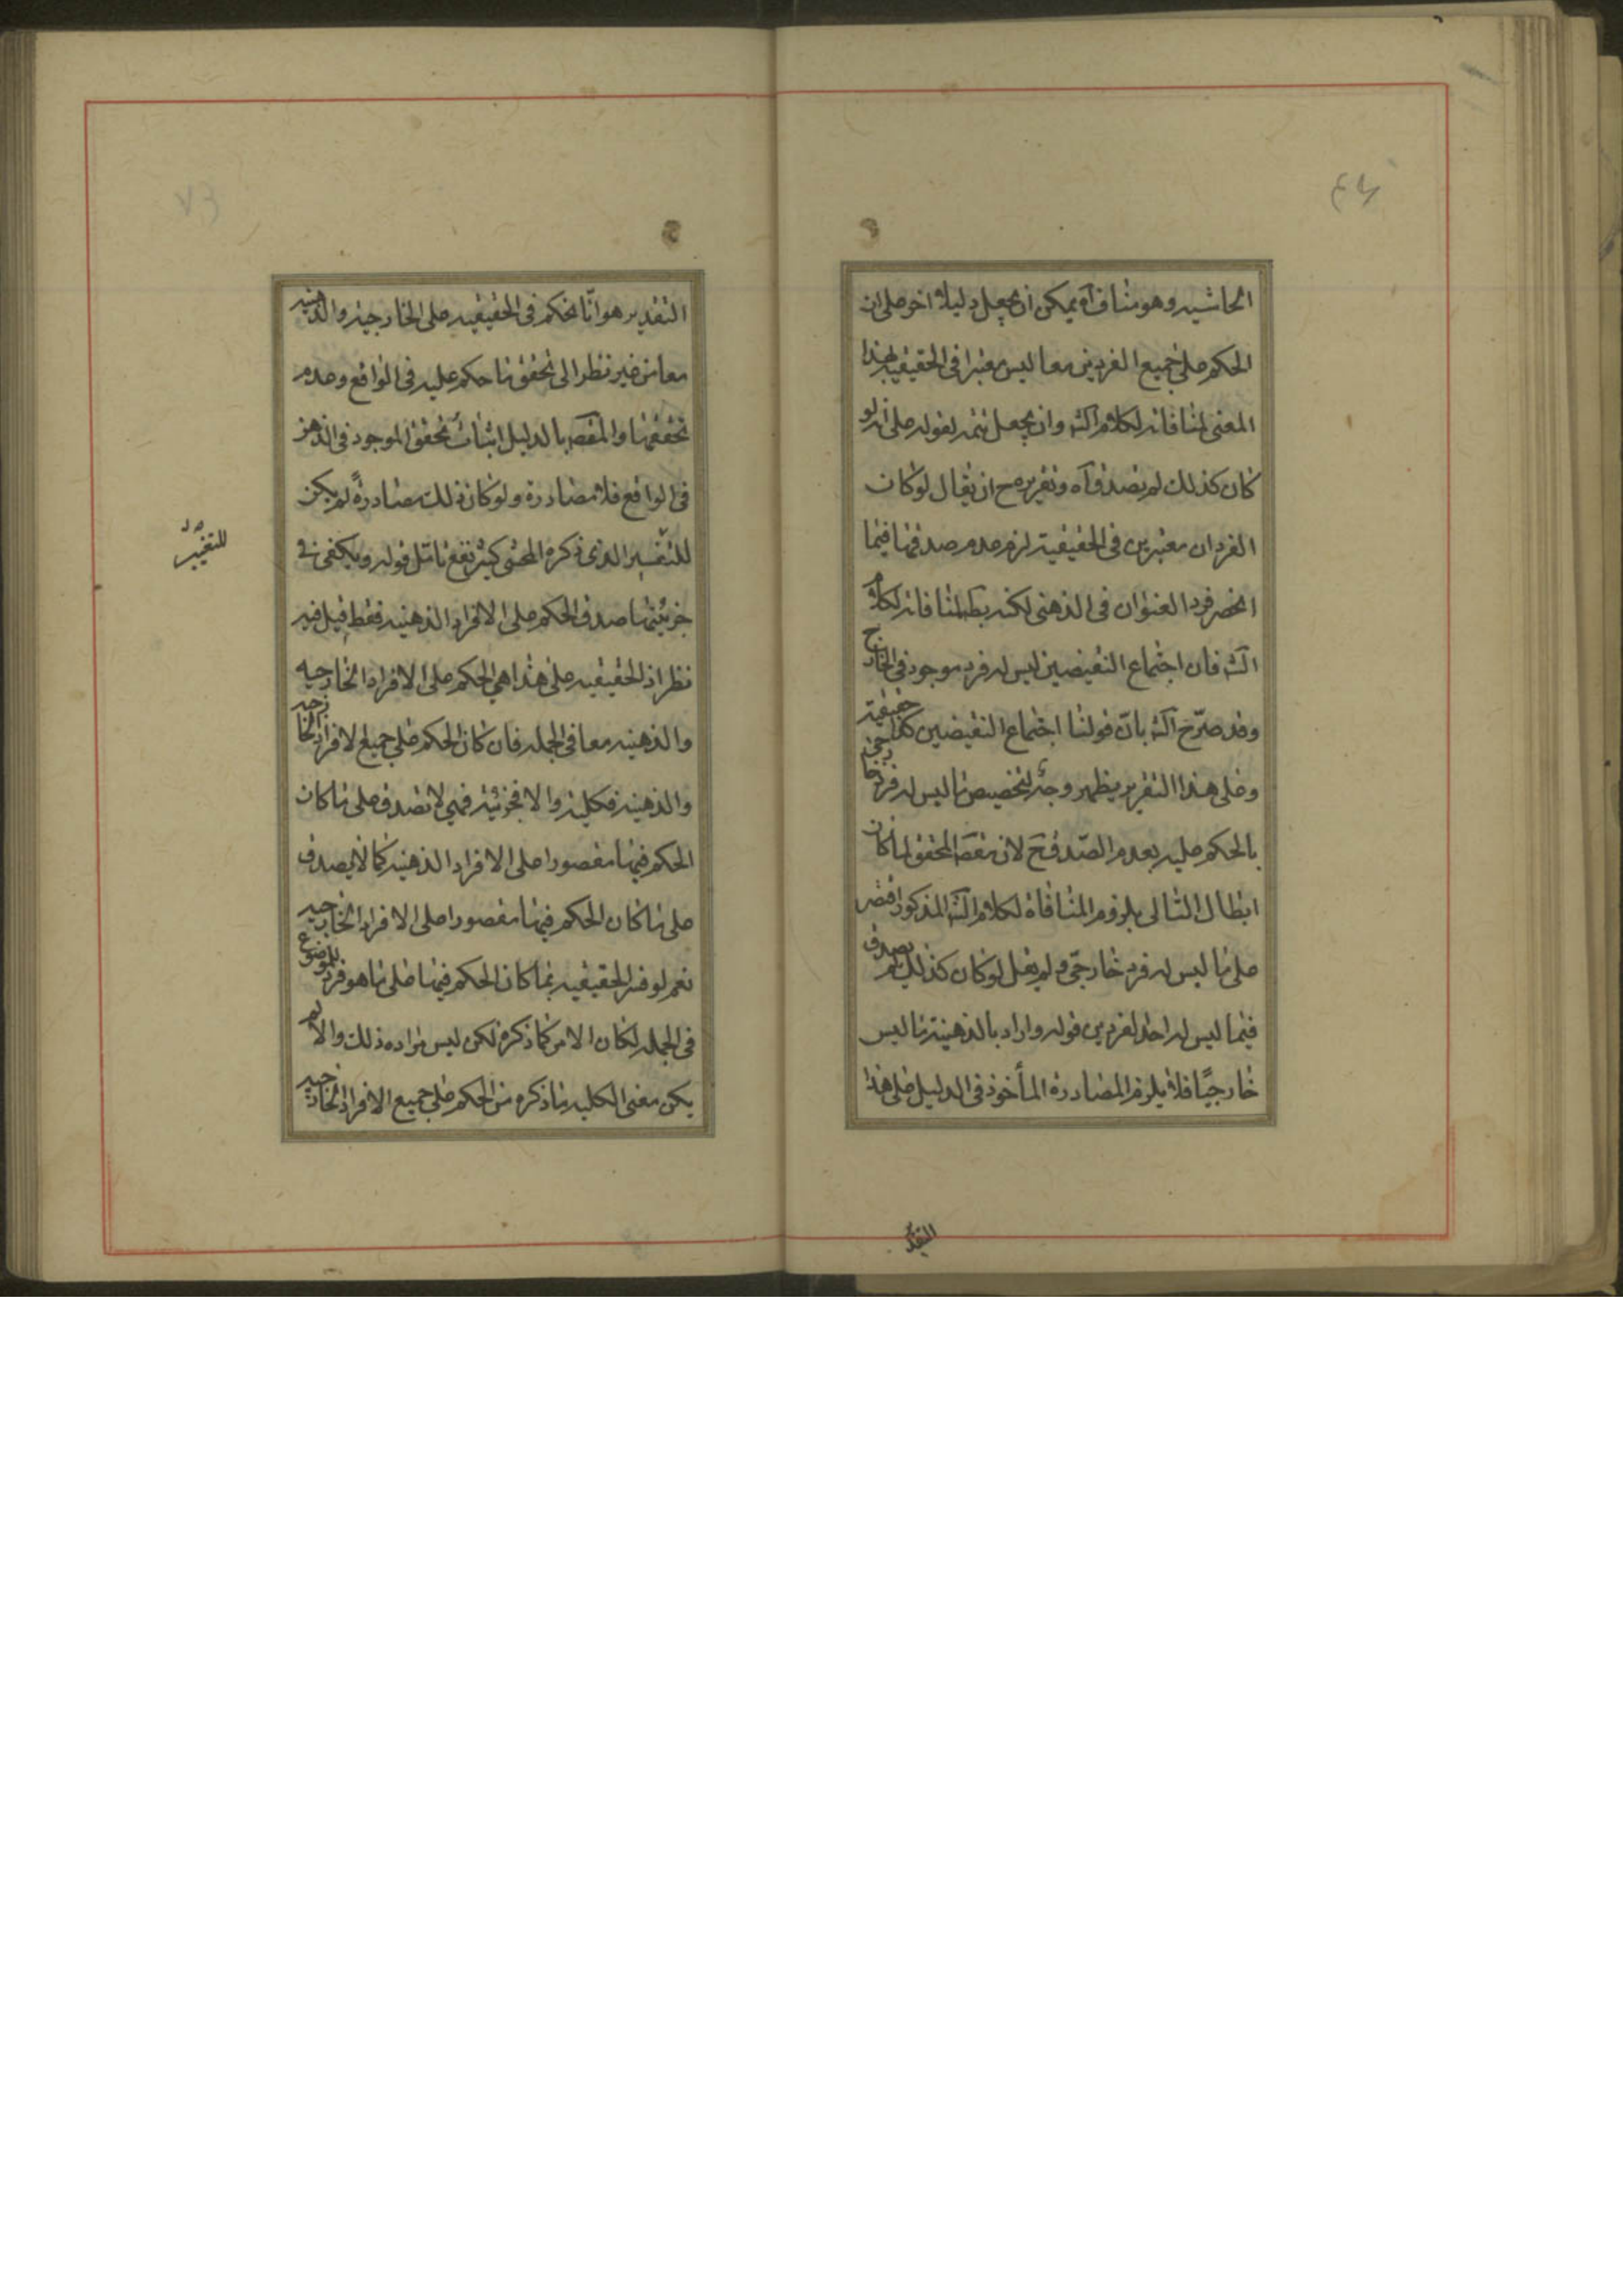 الحاشيه وهو مناف آه يمكن ان يجعل دليلا اخر على ان
الحكم على جميع الفردين معا ليس معتبرا في الحقيقيه بهذا
المعنى لمنافاته لكلام الش وان يجعل تتمه لقوله على انه لو
كان كذلك لم يصدق آه وتقريره ح ان يقال لو كان
الفردان معتبرين في الحقيقية لزم عدم صدقها فيما
انحصر فرد العنوان في الذهنى لكنه بط لمنافاته لكلام
الش فان اجتماع النقيضين ليس له فرد موجود في الخارج
وقد صرّح الش بانّ قولنا اجتماع النقيضين كذا حقيقية
وعلى هذا التقرير يظهر وجه لتخصيص ما ليس له فرد خارجى
بالحكم عليه بعدم الصّدق ح لان مقصَ المحقق لما كان
ابطال التالى بلزوم المنافاة لكلام الش المذكور اقتصر
على ما ليس له فرد خارجىّ ولم يقل لو كان كذلك لم يصدق
فيما ليس له احد الفردين قوله واراد بالذهنية ما ليس
خارجيّا فلا يلزم المصادرة المأخوذ في الدليل على هذا
التقد
التقدير هو انّا نحكم في الحقيقيه على الخارجيه والذهنيه
معا من غير نظر الى تحقق ما حكم عليه في الواقع وعدم
تحققها والمقصَ بالدليل اثبات تحقق الموجود في الذهن
في الواقع فلا مصادرة ولو كان ذلك مصادرةً لم يكن
للتفسير الذى ذكره المحشى كثير نفع تامّل قوله ويكفى في
للتغيير
جزئيتها صدق الحكم على الافراد الذهنيه فقط قيل فيه
نظر اذ الحقيقيه على هذا هي الحكم على الافراد الخارجيه
والذهنيه معا في الجمله فان كان الحكم على جميع الافراد الخارجيه
والذهنيه فكليه والا فجزئيه فهي لا تصدق على ما كان
الحكم فيها مقصورا على الافراد الذهنيه كما لا يصدق
على ما كان الحكم فيها مقصورا على الافراد الخارجيه
نعم لو فسر الحقيقيه بما كان الحكم فيها على ما هو فرد للموضوع
في الجمله لكان الامر كما ذكره لكن ليس مراده ذلك والا لم
يكن معنى الكليه ما ذكره من الحكم على جميع الافراد الخارجيه